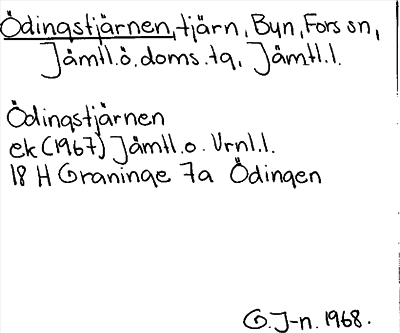 Ödingstjärnen, tjärn, Byn, Fors sn,
Jämtl.ö. doms. tg, Jämtl.l.
Ödingstjärnen
ek (1967) Jämtl.o. Vrnl.l.
18 H Graninge 7a Ödingen
G. J-n. 1968.